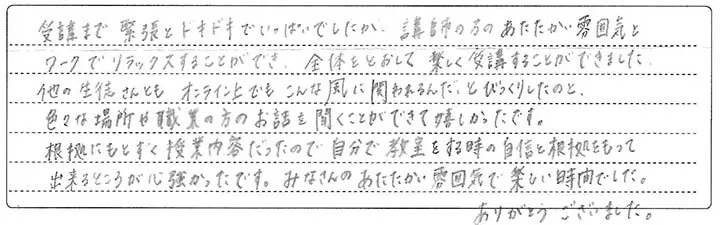 受講まで緊張とドキドキでいっぱいでしたが、講師の方のあたたかい雰囲気と
ワークでリラックスすることができ、全体をとおして楽しく受講することができました。
他の生徒さんとも オンライン上でも こんな風に関われるんだ、とびっくりしたのと、
色々な場所や職業の方のお話を聞くことができて嬉しかったです。
根拠にもとずく授業内容だったので自分で教室をする時の自信と根拠をもって
出来るところが心強かったです。みなさんのあたたかい雰囲気で楽しい時間でした。
ありがとうございました。